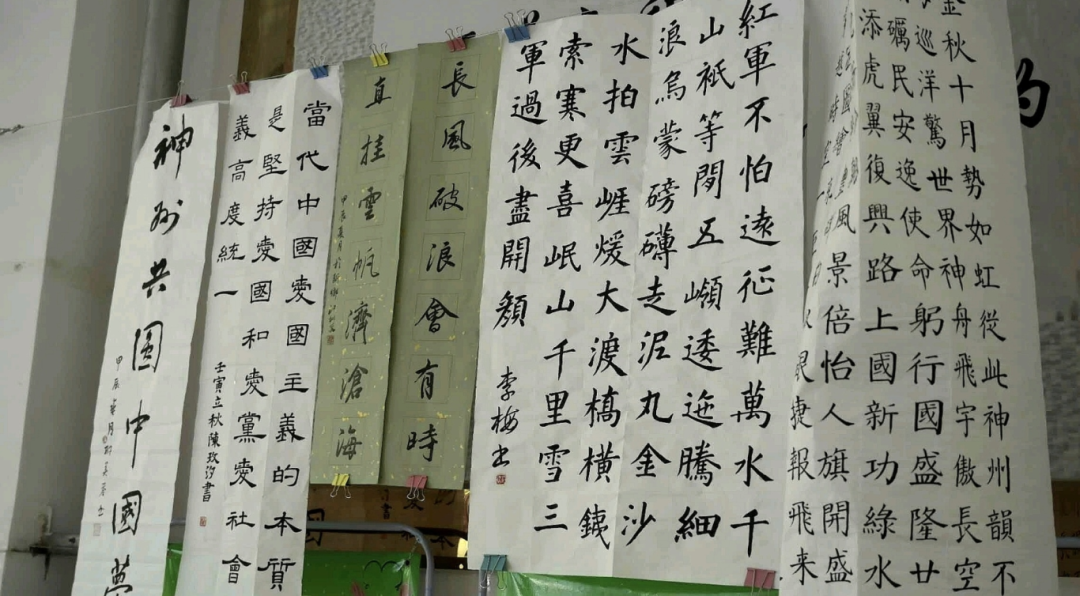 金秋十月勢如虹從此神州韻不
巡洋驚世界神舟飛宇傲長空
礪民安逸使命躬行國盛隆廿
添虎翼復興路上國新功綠水
風景倍怡人旗開盛
捷報飛來
紅軍不怕遠征難萬水千
山祇等閒五嶺逶迤騰細
浪烏蒙磅礴走泥丸金沙
水拍雲崕煖大渡橋橫鐵
索寒更喜岷山千里雪三
軍過後盡開顏
李梅书
長風破浪會有時
直挂雲帆濟滄海
當代中國愛國主義的本質
是堅持愛國和愛黨愛社會
義高度統一
壬寅立秋陳玫汐書
神州共圓中國夢